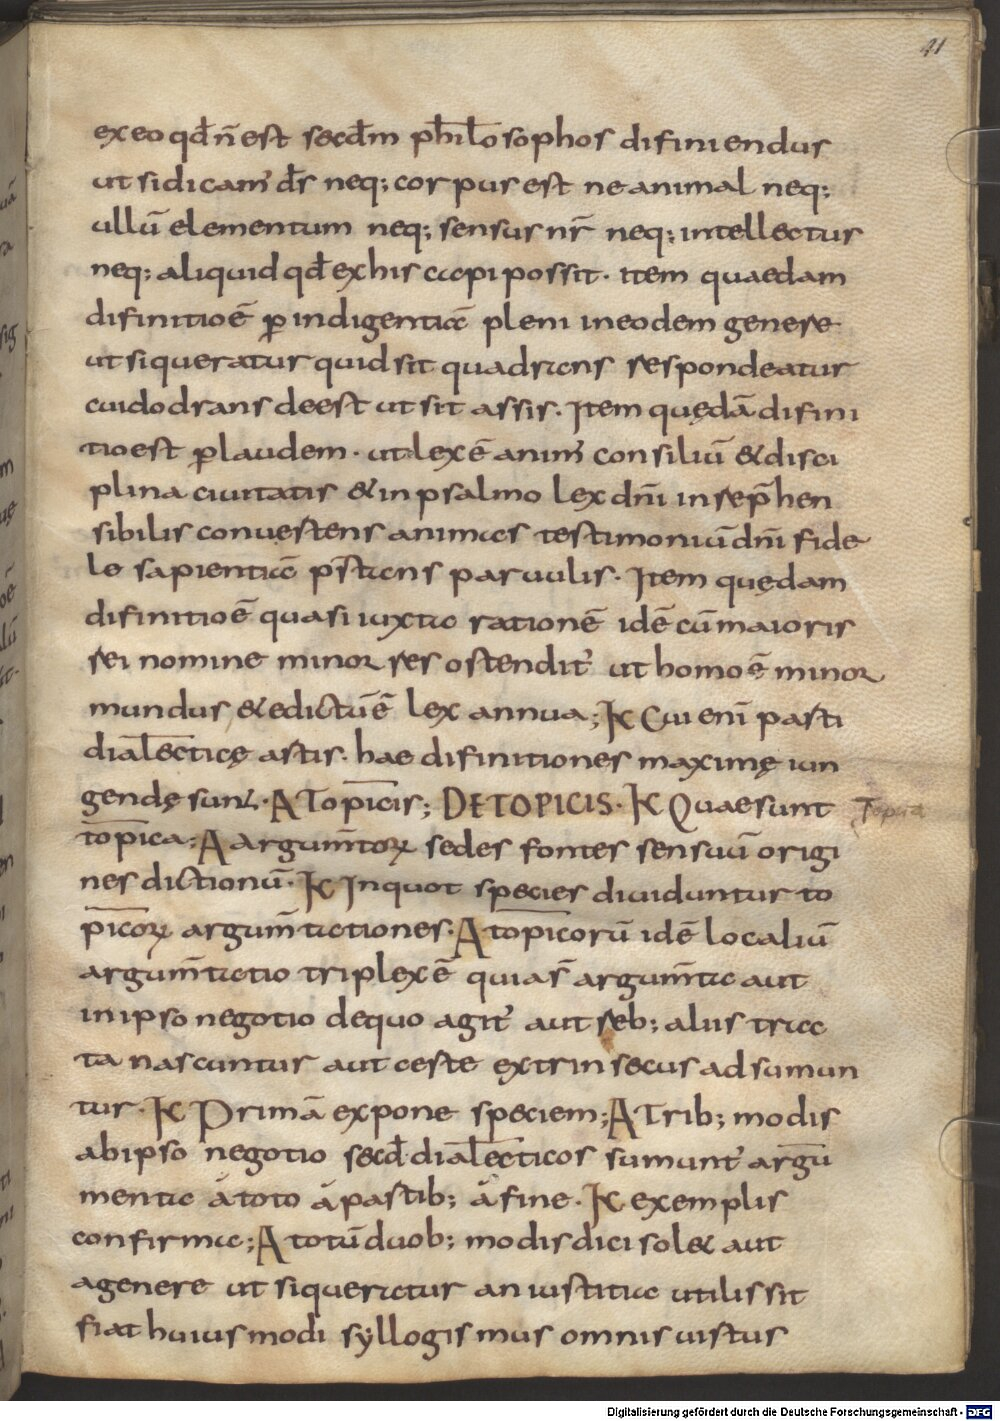 41
ex eo qd̄ n̄ est secd̄m philosophos difiniendus
ut si dicam' d̄s neq; corpus est ne animal neq;
ullū elementum neq; sensus nr̄ neq; intellectus
neq; aliquid qd̄ ex his capi possit. item quaedam
difinitio ē ꝑ indigentiā pleni in eodem genere
ut si queratur quid sit quadrans respondeatur
cui dodrans deest ut sit assis. Item quędā difini
tio est ꝑ laudem. ut lex ē anim' consiliū & disci
plina ciuitatis & in psalmo lex dn̄i inrep̄hen
sibilis conuertens animas testimoniū dn̄i fide
le sapientiā p̄stans paruulis. Item quędam
difinitio ē quasi iuxta rationē idē cū maioris
rei nomine minor res ostendit' ut homo ē minor
mundus, & edictū ē lex annua; K Cui enī parti
dialecticę artis. hae difinitiones maximę iun
gendę sunt. A Topicis; DE TOPICIS. K Quae sunt
Topica
topica; A argum̄torꝝ sedes fontes sensuū origi
nes dictionū. K In quot species diuiduntur to
picorꝝ argum̄tationes. A topicorū idē localiū
argum̄tatio triplex ē quia s̄ argum̄ta aut
in ipso negotio de quo agit' aut reb; aliis trac
ta nascuntur aut certe extrinsecus adsumun
tur. K Primā expone speciem; A Trib; modis
ab ipso negotio secd̄ dialecticos sumunt' argū
menta á toto á partib; á fine. K exemplis
confirma; A totū duob; modis dici sol& aut
a genere ut si queratur an iustitia utilis sit
fiat huius modi syllogismus omnis uirtus
Digitalisierung gefördert durch die Deutsche Forschungsgemeinschaft - DFG